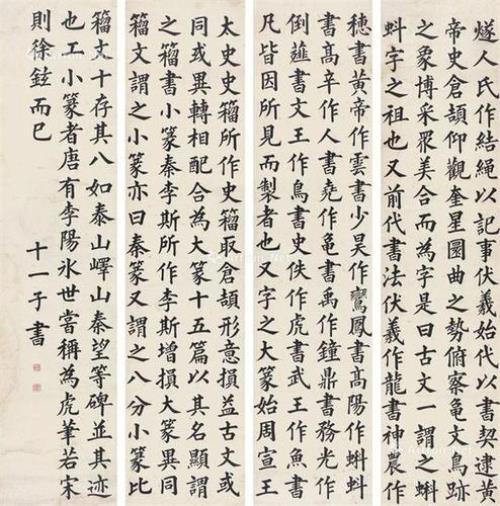 燧人氏作結繩以記事伏羲始代以書契逮黃
帝史倉頡仰觀奎星圜曲之勢俯察龜文鳥跡
之象博采眾美合而為字是曰古文一謂之蝌
蚪字之祖也又前代書法伏羲作龍書神農作
穗書黃帝作雲書少昊作鸞鳳書高陽作蝌蚪
書高辛作人書堯作龜書禹作鐘鼎書務光作
倒薤書文王作鳥書史佚作虎書武王作魚書
凡皆因所見而製者也又字之大篆始周宣王
太史史籀所作史籀取倉頡形意損益古文或
同或異轉相配合為大篆十五篇以其名顯謂
之籀書小篆秦李斯所作李斯增損大篆異同
籀文謂之小篆亦曰秦篆又謂之八分小篆比
籀文十存其八如泰山嶧山秦望等碑並其迹
也工小篆者唐有李陽氷世當稱為虎筆若宋
則徐鉉而已
十一子書